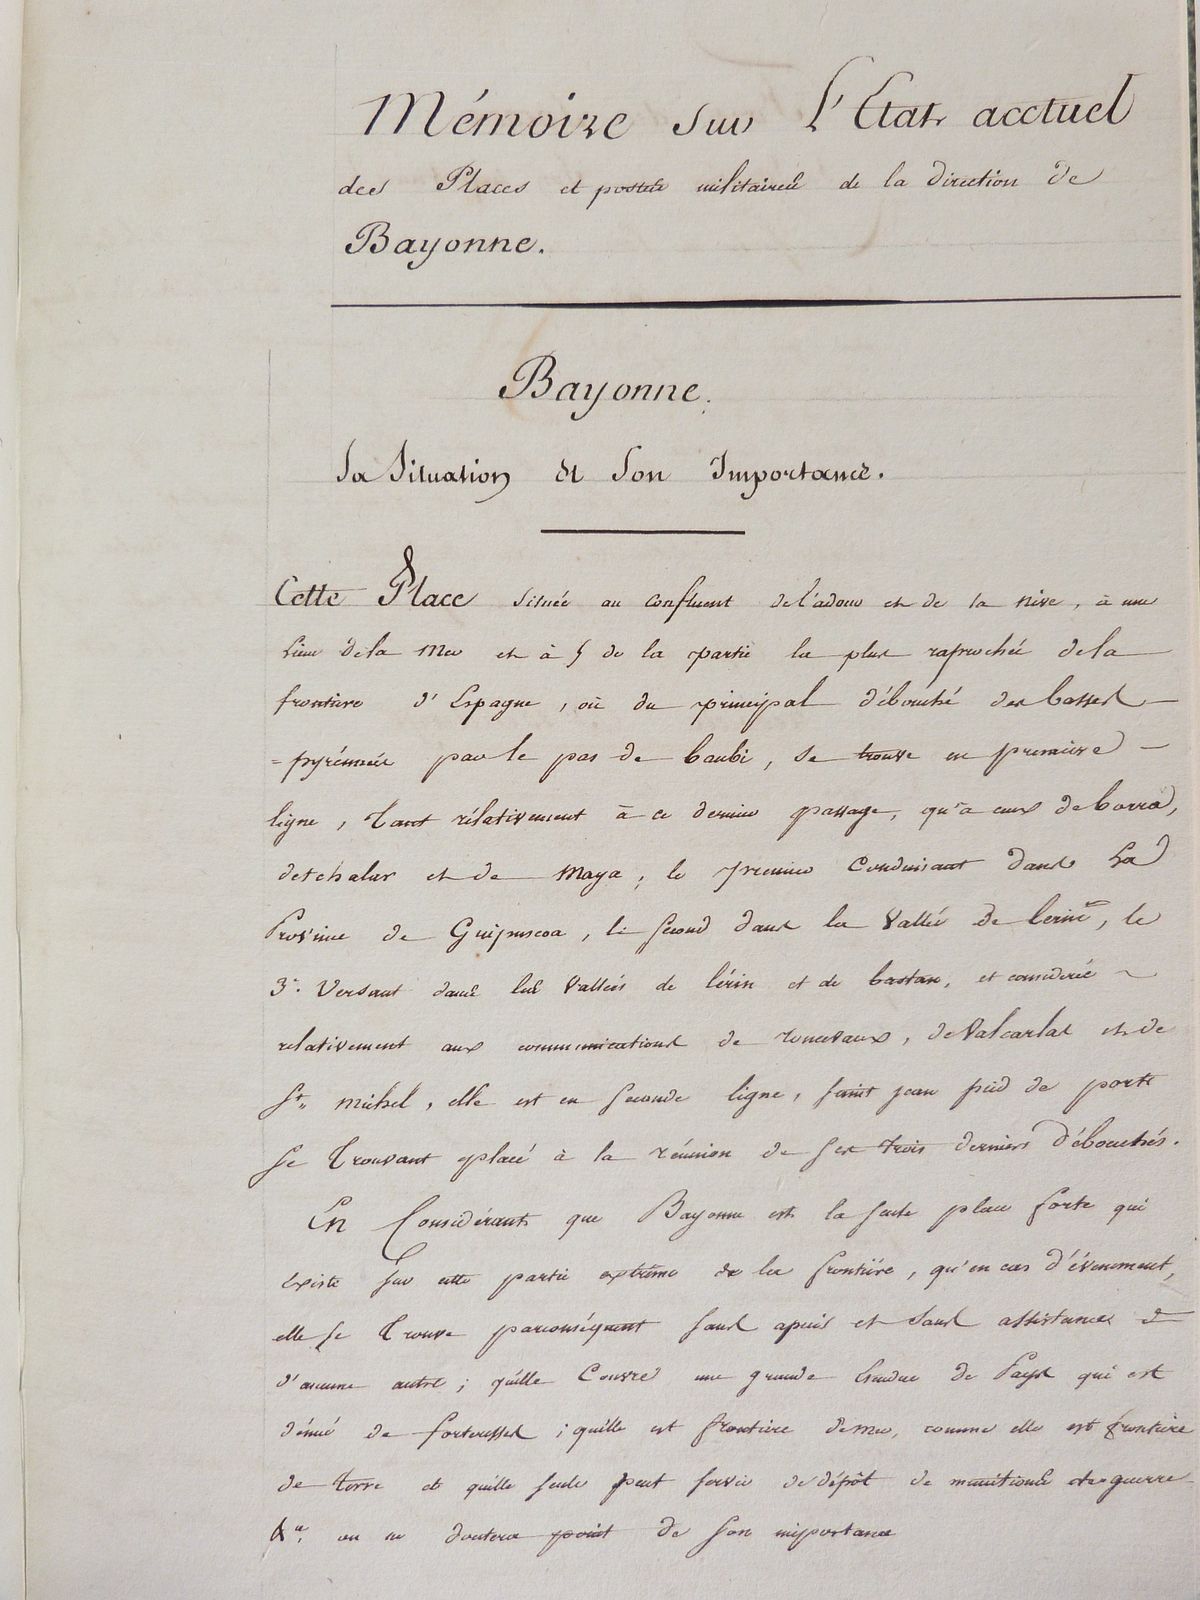 Mémoire sur L'Etat acctuel
des Places et postes militaires de la direction de
Bayonne.
Bayonne.
Sa Situation et Son Importance.
Cette Place située au confluent de l'adour et de la nive, à une
lieue de la Mer et à 5 de la partie la plus raprochée de la
frontiere d'Espagne, où du principal débouché des basses
=pyrénnées par le pas de , se trouve en premiere
ligne, tant rélativement à ce dernier passage, qu'à ceux de ,
et de Maya; le premier Conduisant dans La
Province de Guipuscoa, le second dans la Vallée de lerin, le
3e. Versant dans les Vallées de lérin et de bastan, et considérée
relativement aux communications de roncevaux, de Valcarlas et de
St,, michel, elle est en seconde ligne, saint jean pied de port
se trouvant placé à la réunion de ses trois derniers débouchés.
En Considérant que Bayonne est la seule place forte qui
existe sur cette partie extrême de la frontière, qu'en cas d'évenement,
elle se trouve parconséquent sans apuis et sans assistance
d'aucune autre; qu'elle Couvre une grande étendue de Pays qui est
dénué de forteresses; qu'elle est frontiere de mer, comme elle est frontiere
de terre et qu'elle seule peut servir de dépôt de munitions de guerre
&a. on ne doutera point de son importance